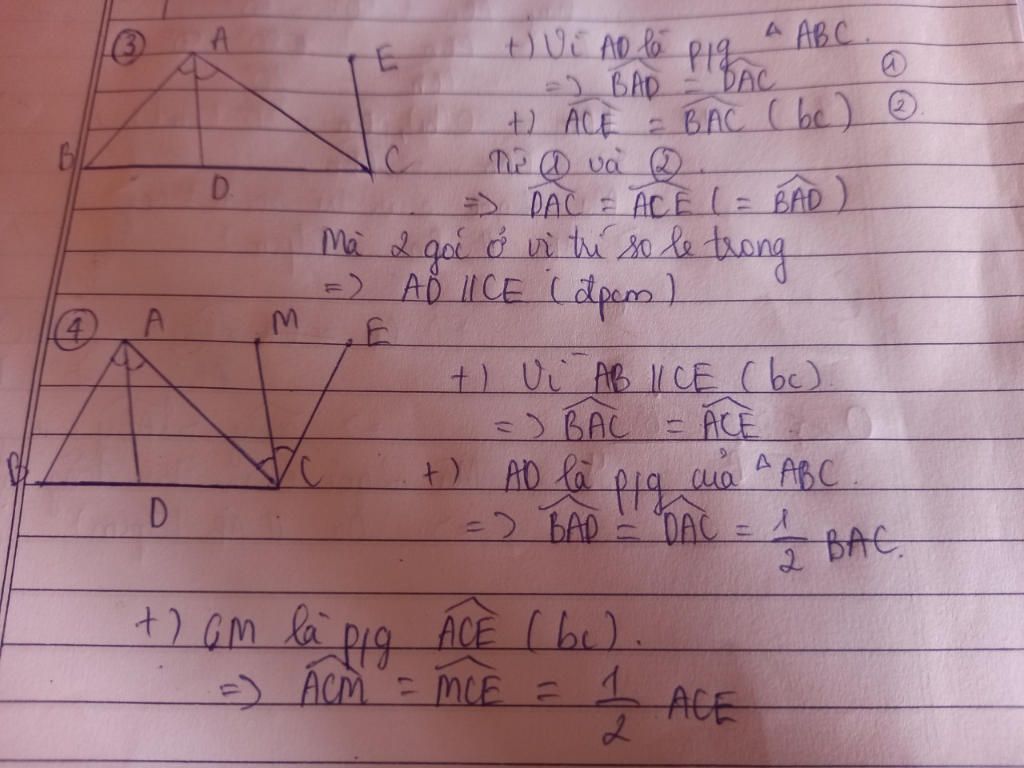 ③ A E +) Vì AD là p/g △ ABC.
=> BAD = DAC ①
+) ACE = BAC (bc) ②
B D C Từ ① và ②
=> DAC = ACE (= BAD)
Mà 2 gói ở vì trí so le trong
=> AD // CE (đpcm)
④ A M E
+) Vì AB // CE (bc)
=> BAC = ACE
B D C +) AD là p/g của △ ABC.
=> BAD = DAC = 1/2 BAC.
+) CM là p/g ACE (bc).
=> ACM = MCE = 1/2 ACE